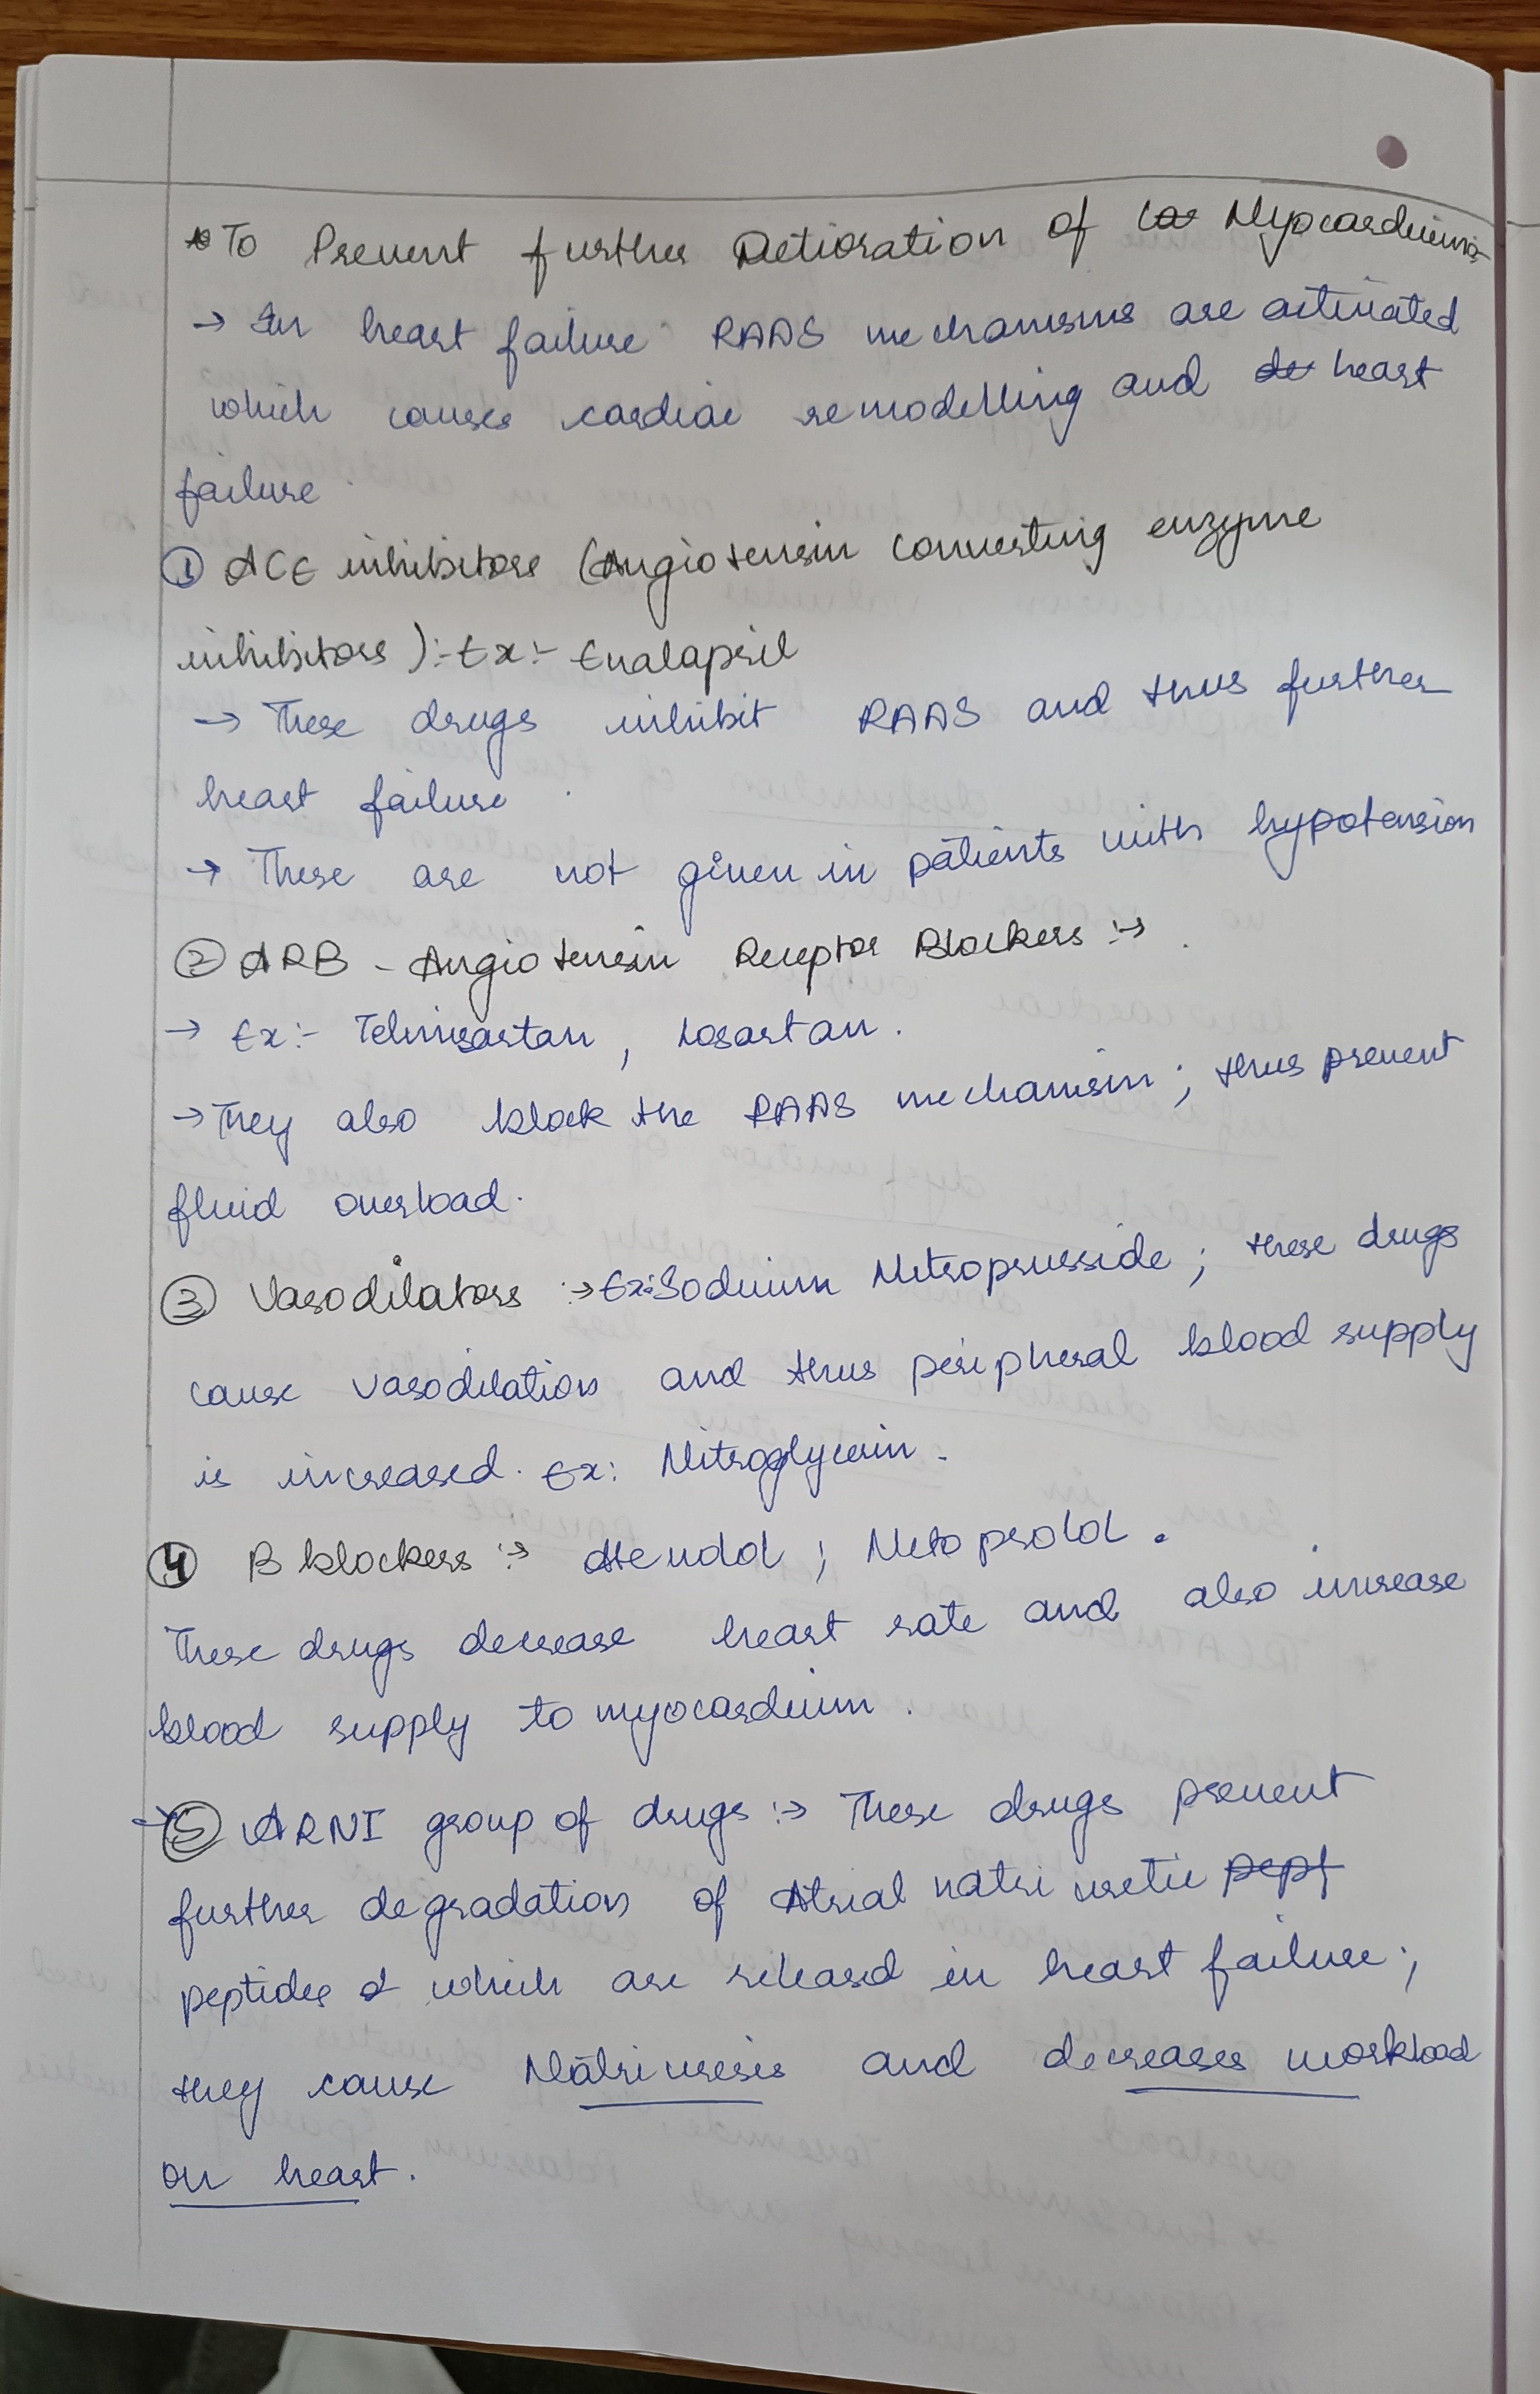 * To Prevent further Detioration of Myocardium
→ In heart failure RAAS mechanisms are activated
which causes cardiac remodelling and heart
failure
① ACE inhibitors (Angiotensin converting enzyme
inhibitors ):- Ex:- Enalapril
→ These drugs inhibit RAAS and thus further
heart failure.
→ These are not given in patients with hypotension
② ARB - Angiotensin Receptor Blockers :→
→ Ex:- Telmisartan, Losartan.
→ They also block the RAAS mechanism; thus prevent
fluid overload.
③ Vasodilators :→ Ex: Sodium Nitroprusside; these drugs
cause vasodilation and thus peripheral blood supply
is increased. Ex: Nitroglycerin.
④ B blockers :→ Atenolol; Metoprolol.
These drugs decrease heart rate and also increase
blood supply to myocardium.
→ ⑤ ARNI group of drugs :→ These drugs prevent
further degradation of Atrial natri uretic pept
peptides which are released in heart failure;
they cause Natriuresis and decreases workload
on heart.